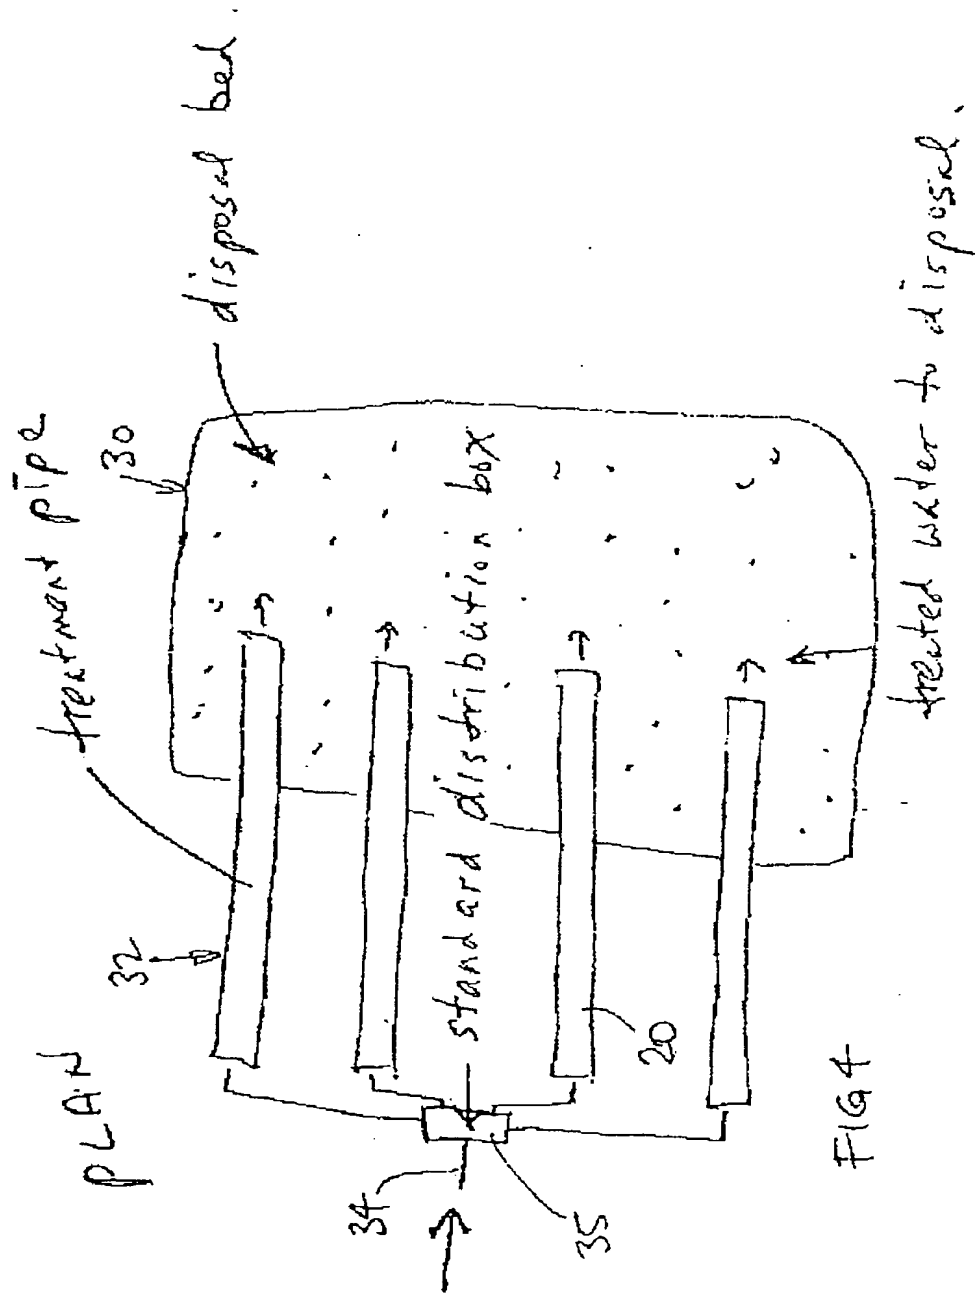 PLAN
32
treatment pipe
30
disposal bed.
34
standard distribution box
35
20
treated water to disposal.
FIG 4